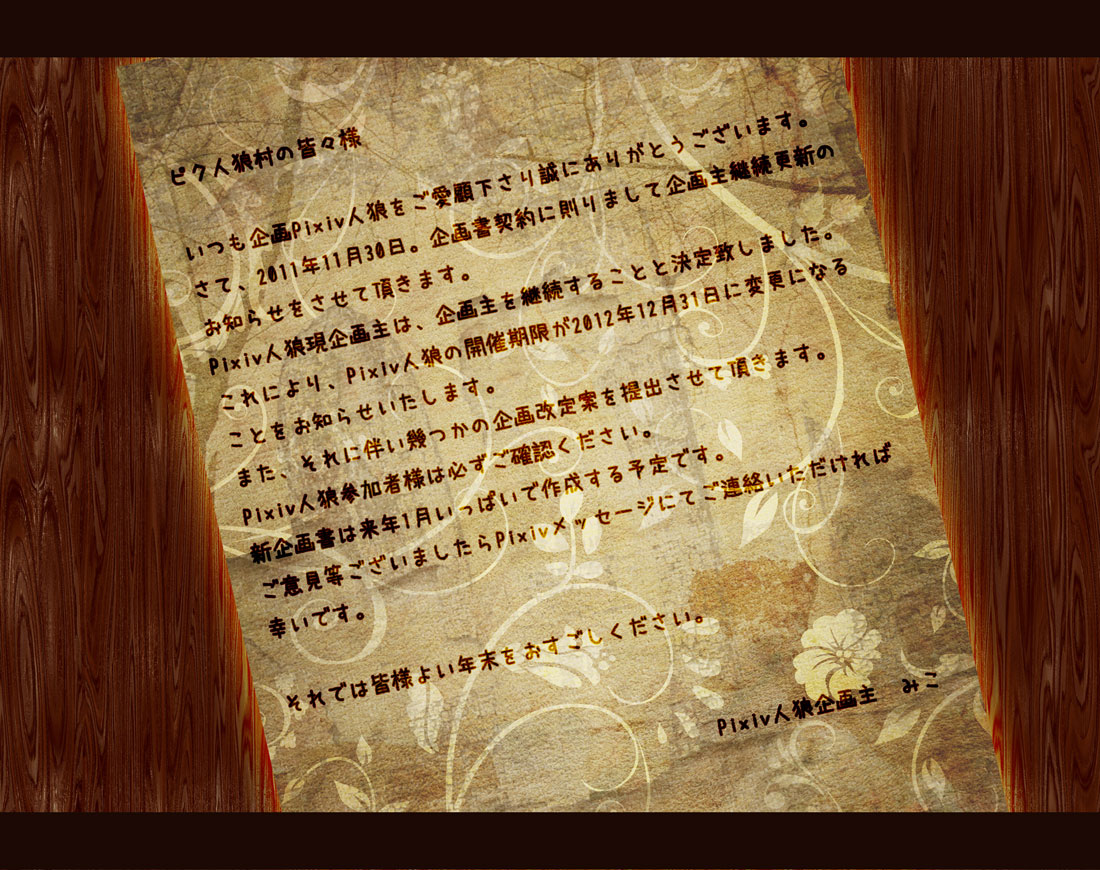 ピク人狼村の皆々様
いつも企画Pixiv人狼をご愛顧下さり誠にありがとうございます。
さて、2011年11月30日。企画書契約に則りまして企画主継続更新の
お知らせをさせて頂きます。
Pixiv人狼現企画主は、企画主を継続することと決定致しました。
これにより、Pixiv人狼の開催期限が2012年12月31日に変更になる
ことをお知らせいたします。
また、それに伴い幾つかの企画改定案を提出させて頂きます。
Pixiv人狼参加者様は必ずご確認ください。
新企画書は来年1月いっぱいで作成する予定です。
ご意見等ございましたらPixivメッセージにてご連絡いただければ
幸いです。
それでは皆様よい年末をおすごしください。
Pixiv人狼企画主 みこ